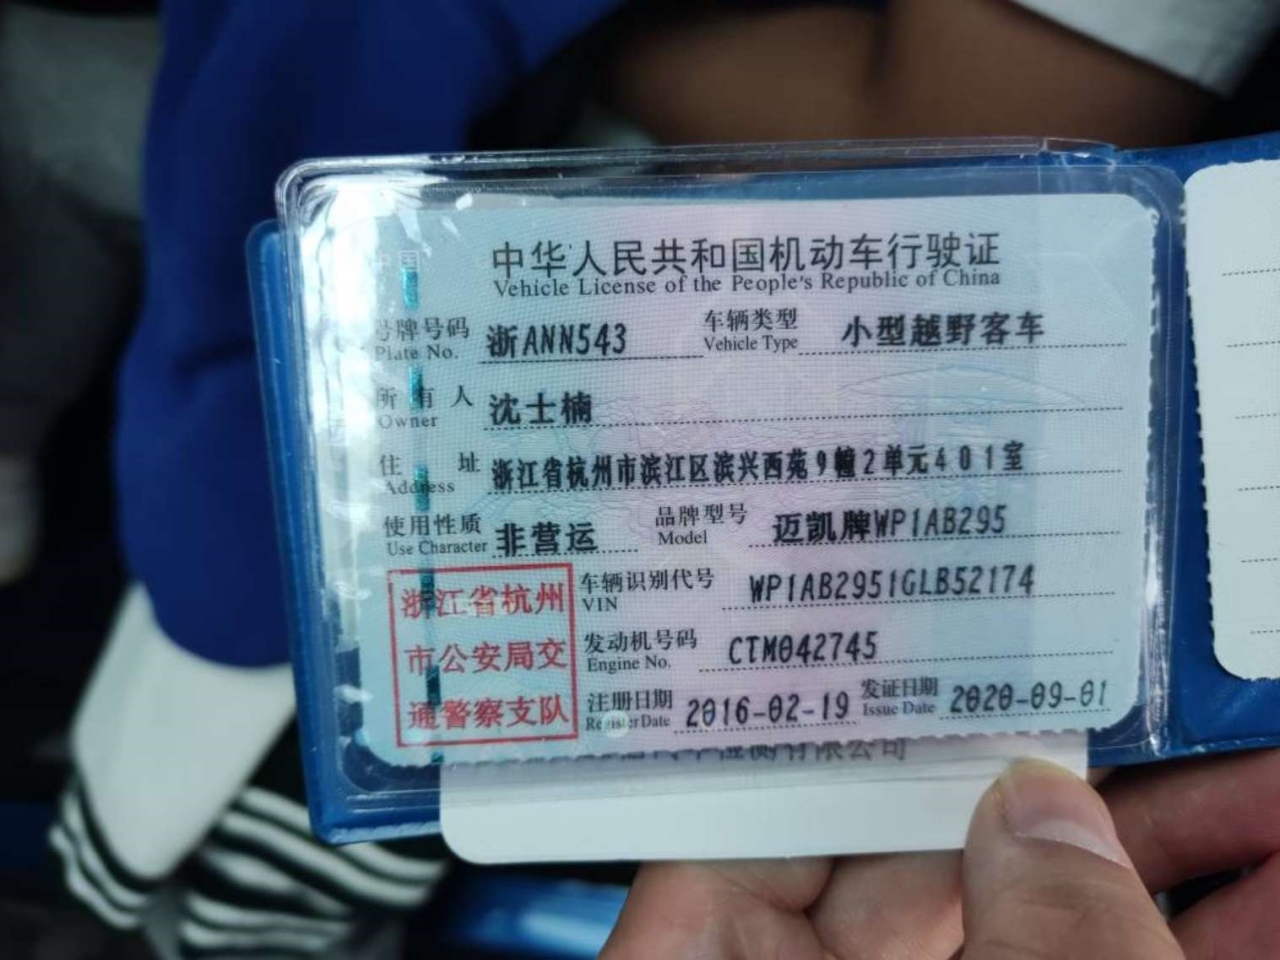 中国
中华人民共和国机动车行驶证
Vehicle License of the People's Republic of China
号牌号码 浙ANN543 车辆类型 小型越野客车
Plate No. Vehicle Type
所有人 沈士楠
Owner
住址 浙江省杭州市滨江区滨兴西苑9幢2单元401室
Address
使用性质 非营运 品牌型号 迈凯牌WP1AB295
Use Character Model
浙江省杭州
市公安局交
通警察支队
车辆识别代号 WP1AB2951GLB52174
VIN
发动机号码 CTM042745
Engine No.
注册日期 2016-02-19 发证日期 2020-09-01
Register Date Issue Date
汽车检测有限公司